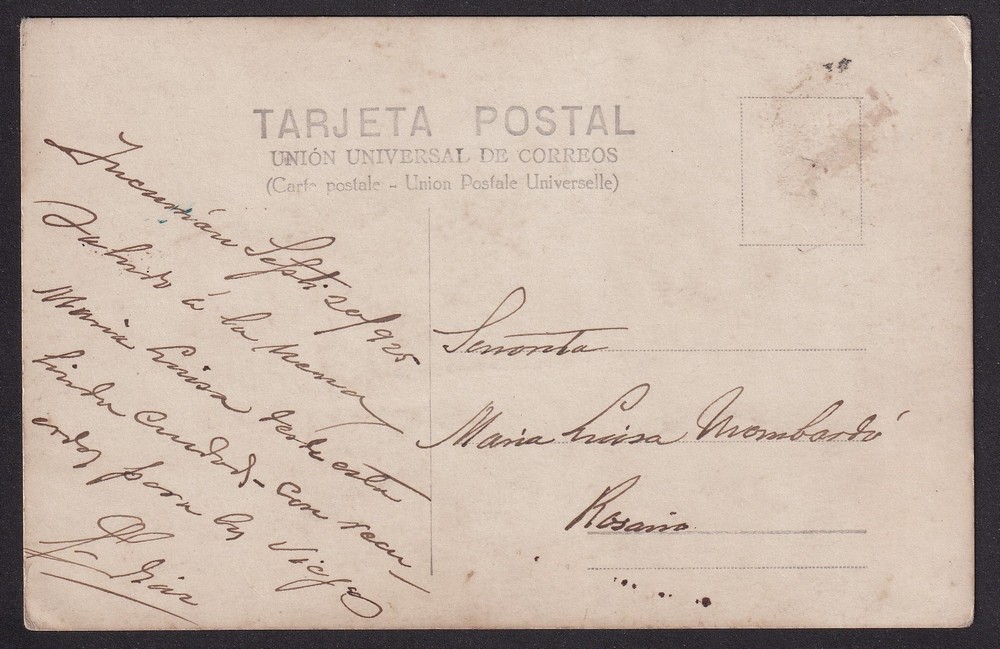 TARJETA POSTAL
UNIÓN UNIVERSAL DE CORREOS
(Carte postale - Union Postale Universelle)
Tucumán Septi 20/925
Saludo á la nena
Maria Luisa desde esta
linda ciudad - con recu
erdos para los viejos
Diaz
Señorita
Maria Luisa Mombardó
Rosario